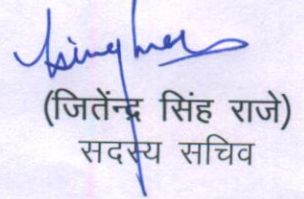 (जितेंन्द्र सिंह राजे)
सदस्य सचिव